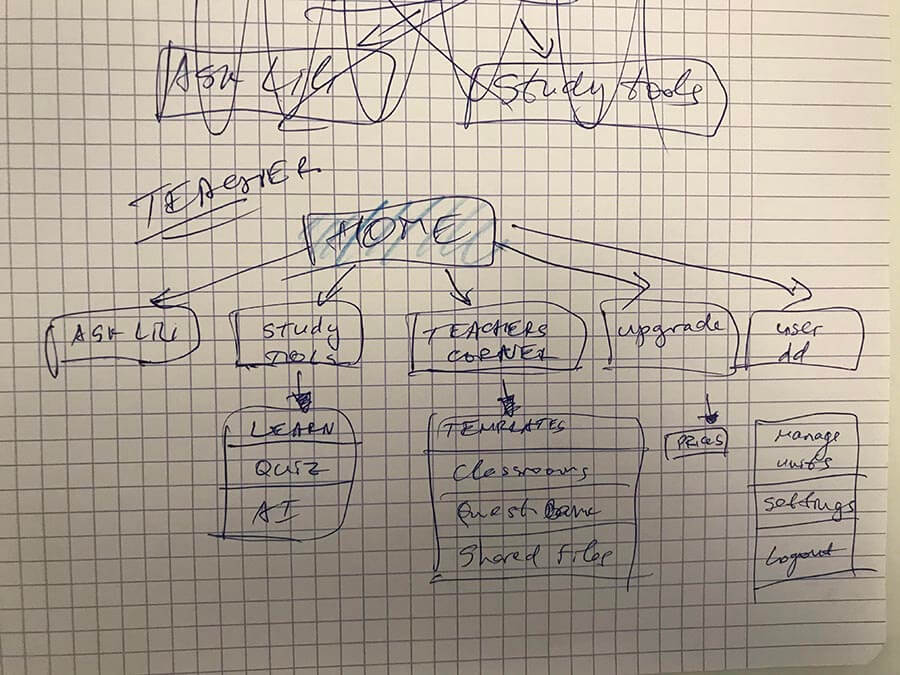 Ask Lili
Study tools
TEACHER
HOME
ASK Lili
Study
TOOLS
TEACHERS
CORNER
upgrade
user
dd
LEARN
QUIZ
AI
TEMPLATES
Classrooms
Quest Bank
Shared files
PRICES
Manage
units
Settings
Logout